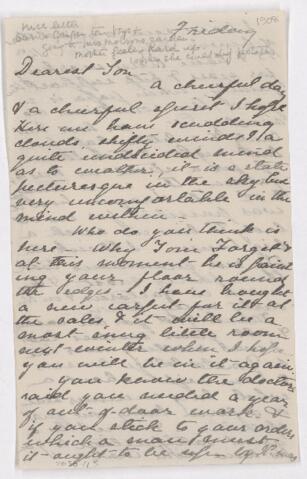 Nice letter
1908
Goes to Miss Motions garden.
mother feeling hard up
Friday
Dearest Tom
a cheerful day
& a cheerful spirit I hope
Here we have scudding
clouds shifty winds & a
quite undecided mind
as to weather, it is a state
picturesque in the sky but
very uncomfortable in the
mind within —
Who do you think is
here — Why Tom Forgett
at this moment he is paint
ing your floor round
the edges. I have bought
a new carpet for it at
the sales & it will be a
most snug little room
next winter when I hope
you will be in it again
— you know the doctor
said you needed a year
of out-of-door work &
if you stick to your orders
which a man must
it ought to be up by